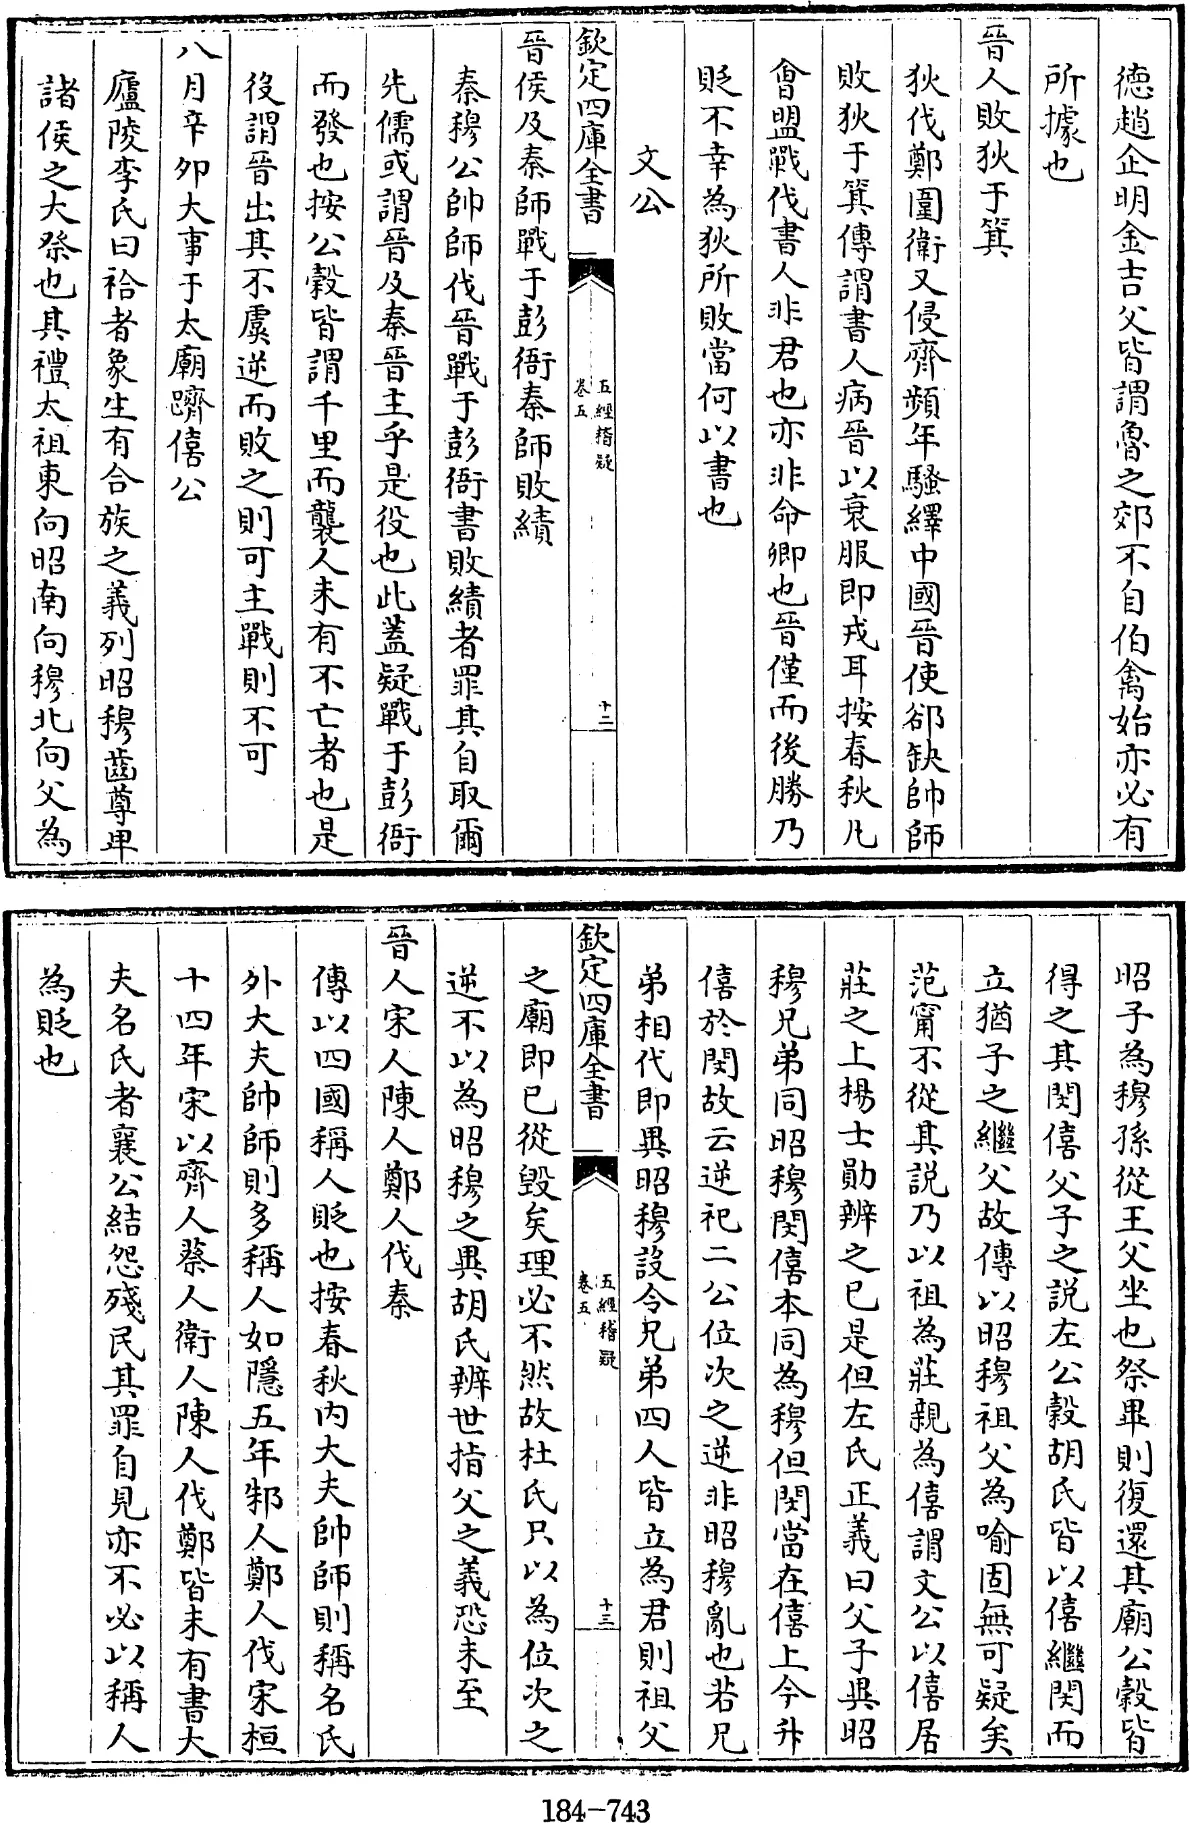 德趙企明金吉父皆謂魯之郊不自伯禽始亦必有
所據也
晉人敗狄于箕
狄伐鄭圍衛又侵齊頻年騷繹中國晉使郤缺帥師
敗狄于箕傳謂書人病晉以衰服即戎耳按春秋凡
會盟戰伐書人非君也亦非命卿也晉僅而後勝乃
貶不幸為狄所敗當何以書也
文公
欽定四庫全書
五經稽疑
卷五
十二
晉侯及秦師戰于彭衙秦師敗績
秦穆公帥師伐晉戰于彭衙書敗績者罪其自取爾
先儒或謂晉及秦晉主乎是役也此蓋疑戰于彭衙
而發也按公穀皆謂千里而襲人未有不亡者也是
役謂晉出其不虞逆而敗之則可主戰則不可
八月辛卯大事于太廟躋僖公
廬陵李氏曰祫者象生有合族之義列昭穆齒尊卑
諸侯之大祭也其禮太祖東向昭南向穆北向父為
昭子為穆孫從王父坐也祭畢則復還其廟公穀皆
得之其閔僖父子之説左公穀胡氏皆以僖繼閔而
立猶子之繼父故傳以昭穆祖父為喻固無可疑矣
范甯不從其説乃以祖為莊親為僖謂文公以僖居
莊之上楊士勛辨之已是但左氏正義曰父子異昭
穆兄弟同昭穆閔僖本同為穆但閔當在僖上今升
僖於閔故云逆祀二公位次之逆非昭穆亂也若兄
弟相代即異昭穆設令兄弟四人皆立為君則祖父
欽定四庫全書
五經稽疑
卷五
十三
之廟即已從毀矣理必不然故杜氏只以為位次之
逆不以為昭穆之異胡氏辨世指父之義恐未至
晉人宋人陳人鄭人伐秦
傳以四國稱人貶也按春秋内大夫帥師則稱名氏
外大夫帥師則多稱人如隱五年邾人鄭人伐宋桓
十四年宋以齊人蔡人衛人陳人伐鄭皆未有書大
夫名氏者襄公結怨殘民其罪自見亦不必以稱人
為貶也
184-743